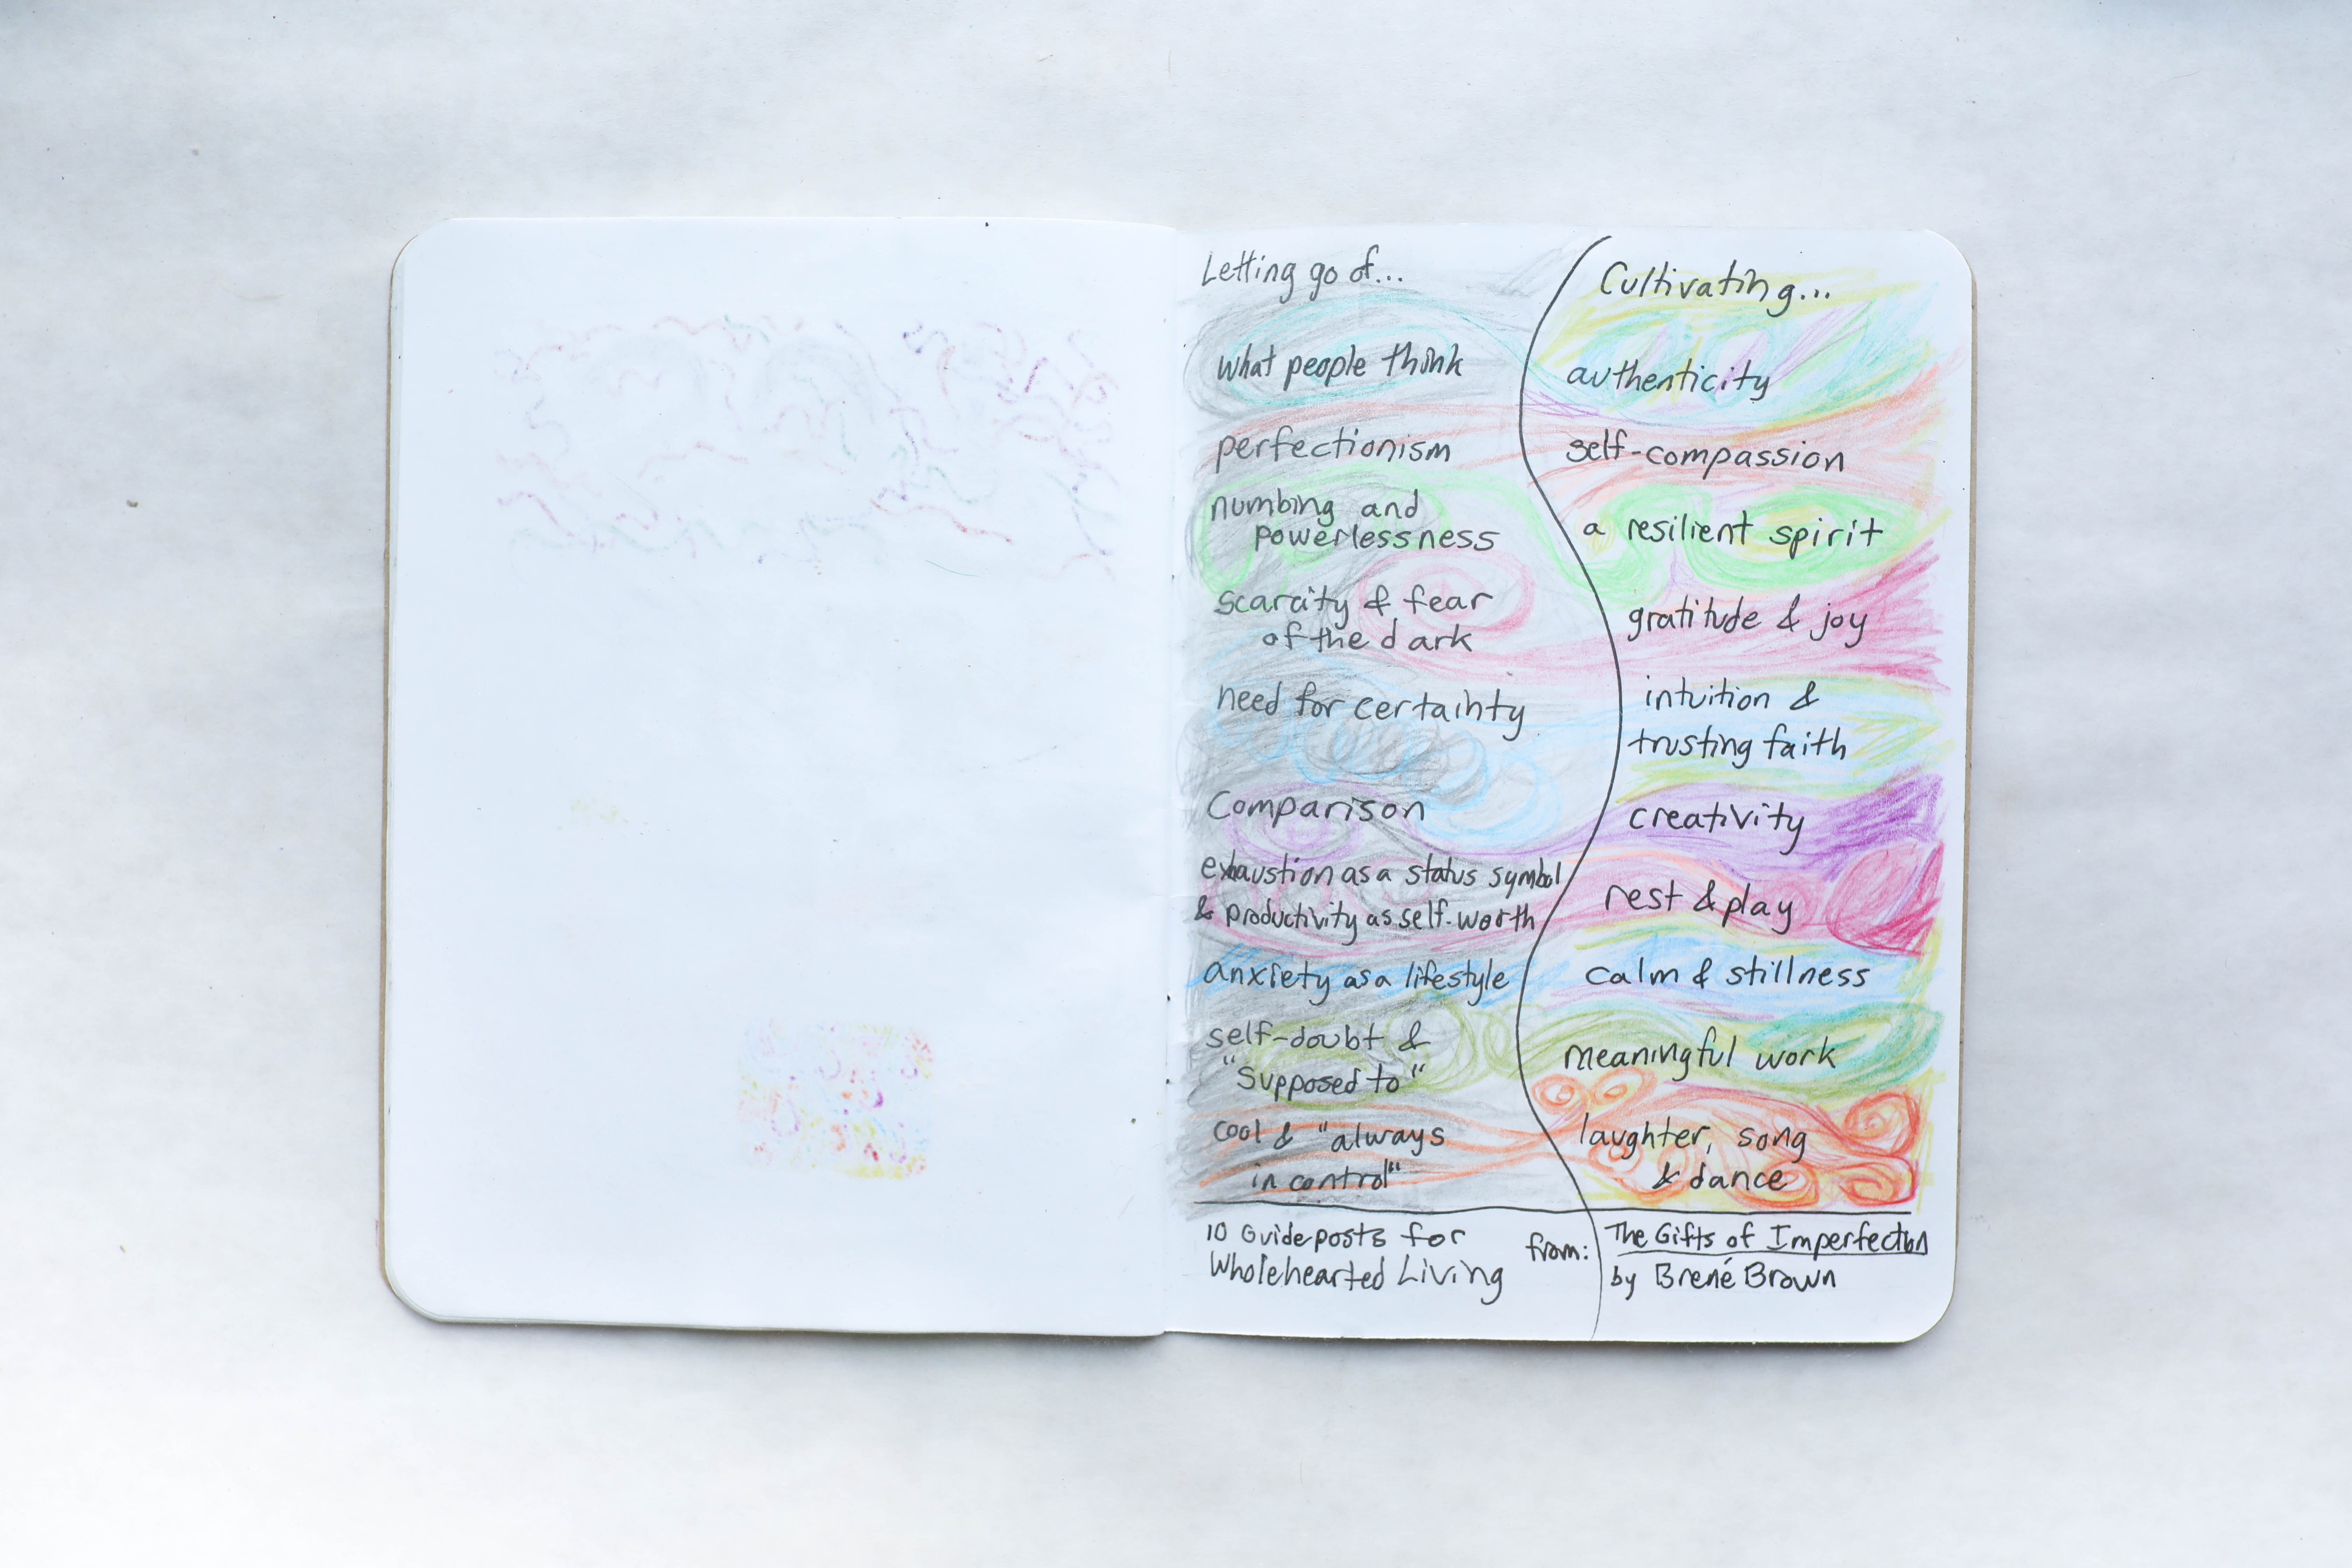 Letting go of...
what people think
perfectionism
numbing and
powerlessness
scarcity & fear
of the dark
need for certainty
Comparison
exhaustion as a status symbol
& productivity as self-worth
anxiety as a lifestyle
self-doubt &
"Supposed to"
cool & "always
in control"
Cultivating...
authenticity
self-compassion
a resilient spirit
gratitude & joy
intuition &
trusting faith
creativity
rest & play
calm & stillness
meaningful work
laughter, song
& dance
10 Guideposts for
Wholehearted Living
from:
The Gifts of Imperfection
by Brené Brown